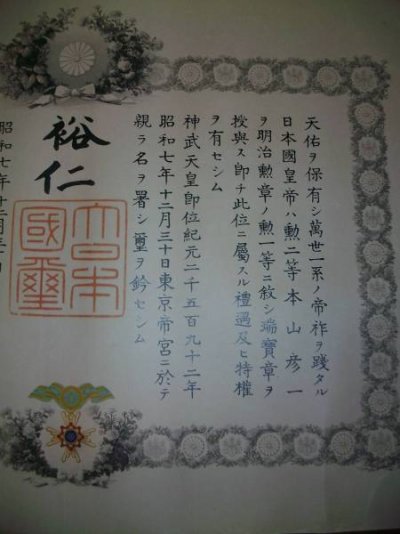 天佑ヲ保有シ萬世一系ノ帝祚ヲ踐タル
日本國皇帝ハ勲二等本山彦一
ヲ明治勲章ノ勲一等ニ敍シ瑞寶章ヲ
授與ス即チ此位ニ屬スル禮遇及ヒ特權
ヲ有セシム
神武天皇即位紀元二千五百九十二年
昭和七年十二月三十日東京帝宮ニ於テ
親ラ名ヲ署シ璽ヲ鈐セシム
裕仁
大日本國璽
昭和七年十二月三十日